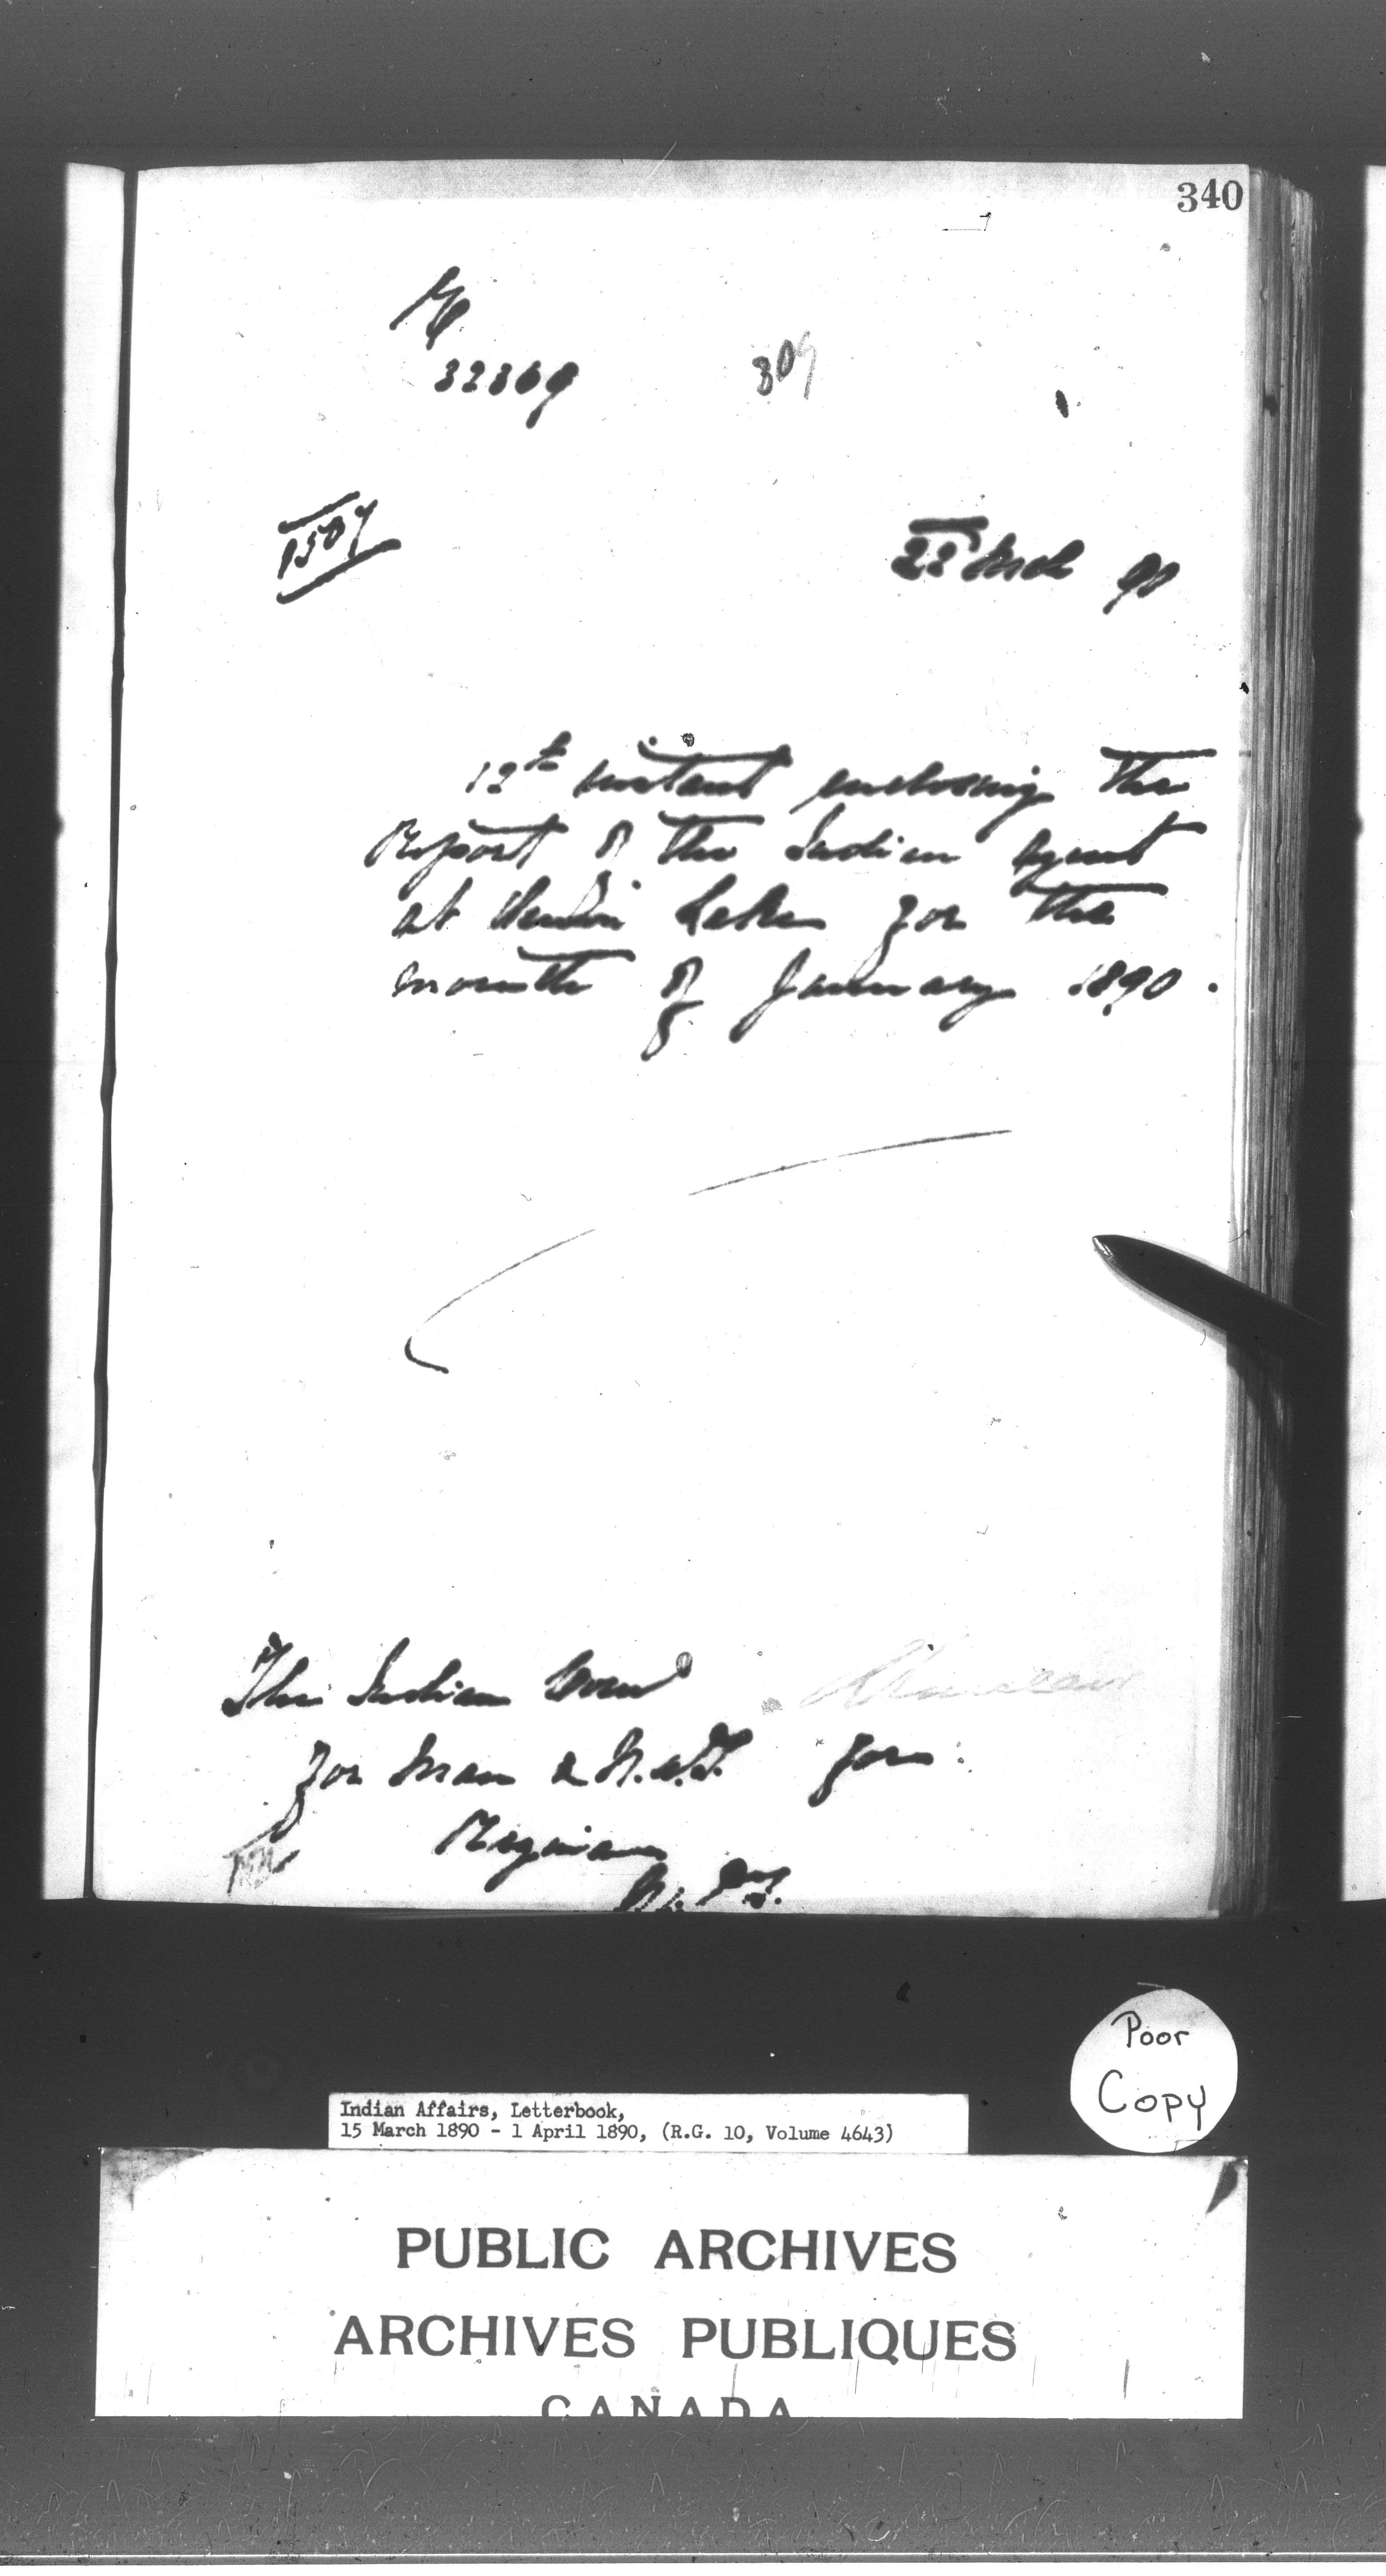 340
32369
309
1507
22 Mch 90
12th instant enclosing the
Report of the Indian Agent
at Lake for the
month of January 1890.
The Indian Comr
for Man & N.W.T. for
Regina
Poor
Copy
Indian Affairs, Letterbook,
15 March 1890 - 1 April 1890, (R.G. 10, Volume 4643)
PUBLIC ARCHIVES
ARCHIVES PUBLIQUES
CANADA